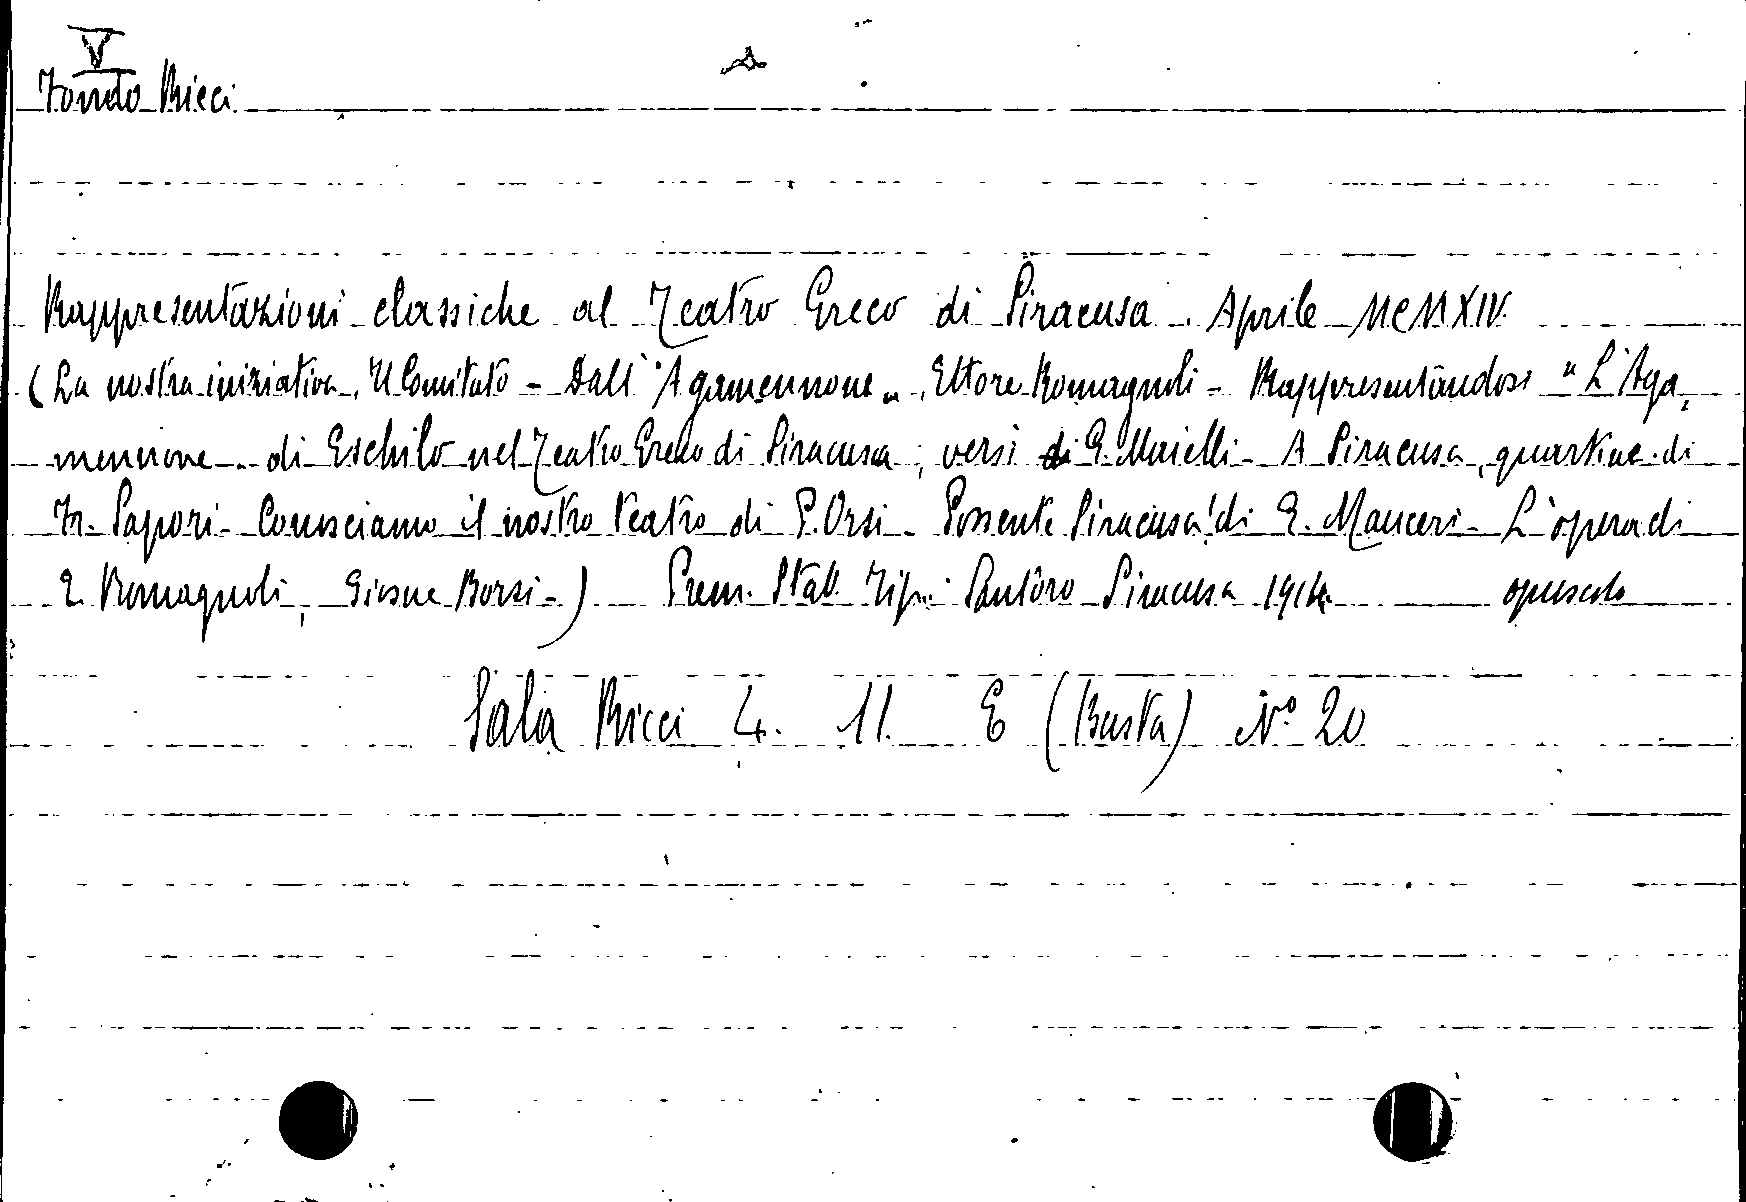 V
Fondo Ricci
Rappresentazioni classiche al Teatro Greco di Siracusa. Aprile MCMXIV.
(La nostra iniziativa, Il Comitato - Dall' "Agamennone", Ettore Romagnoli - Rappresentandosi "L'Aga,
mennone" di Eschilo nel Teatro Greco di Siracusa, versi di G. - A Siracusa, quartine di
Fr. Sapori - Conosciamo il nostro teatro di P. Orsi - Possente Siracusa! di E. Mauceri - L'opera di
E. Romagnoli, Giosue Borsi -) Prem. Stab. Tip. Santoro Siracusa 1914 opuscolo
Sala Ricci 4. 11. E (Busta) N.º 20